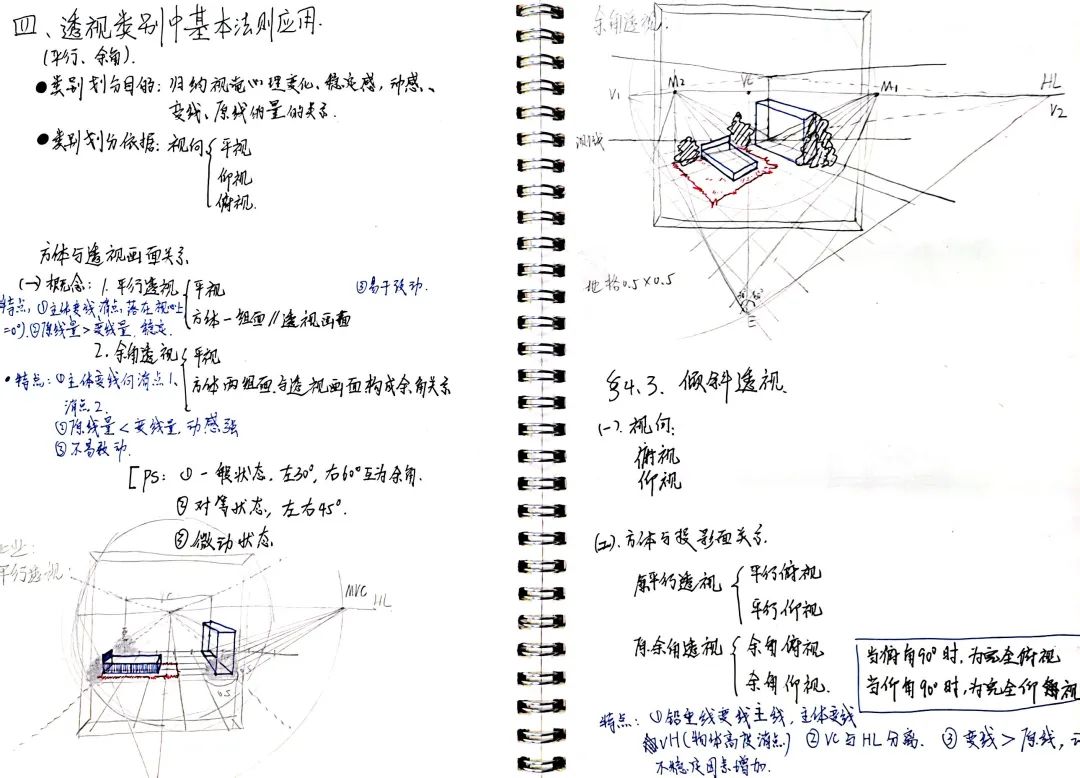 四、透视类别中基本法则应用.
(平行、余角).
●类别划分目的:归纳视觉心理变化、稳定感,动感、
变线、原线的量的关系.
●类别划分依据:视向 平视
仰视
俯视.
方体与透视画面关系
(一)概念:1.平行透视 平视
方体一组面∥透视画面
③易于改动.
特点:①主体变线消点,落在视心上
=0°)②原线量>变线量,稳定.
2.余角透视 平视
方体两组面与透视画面构成余角关系
•特点:①主体变线向消点1、
消点2.
②原线量<变线量,动感强
③不易改动.
[PS:①一般状态.左30°,右60°互为余角.
②对等状态,左右45°.
③微动状态
业:
平行透视:
VC
MVC
HL
0.5
余角透视:
V1
M2
VC
M1
HL
V2
测线
地格0.5×0.5
E
§4.3.倾斜透视
(一).视向:
俯视
仰视
(二).方体与投影面关系.
原平行透视 平行俯视
平行仰视
原余角透视 余角俯视
余角仰视.
当俯角90°时,为完全俯视
当仰角90°时,为完全仰视
特点:①铅垂线变线主线,主体变线
VH(物体高度消点) ②VC与HL分离. ③变线>原线,
不稳定因素增加.